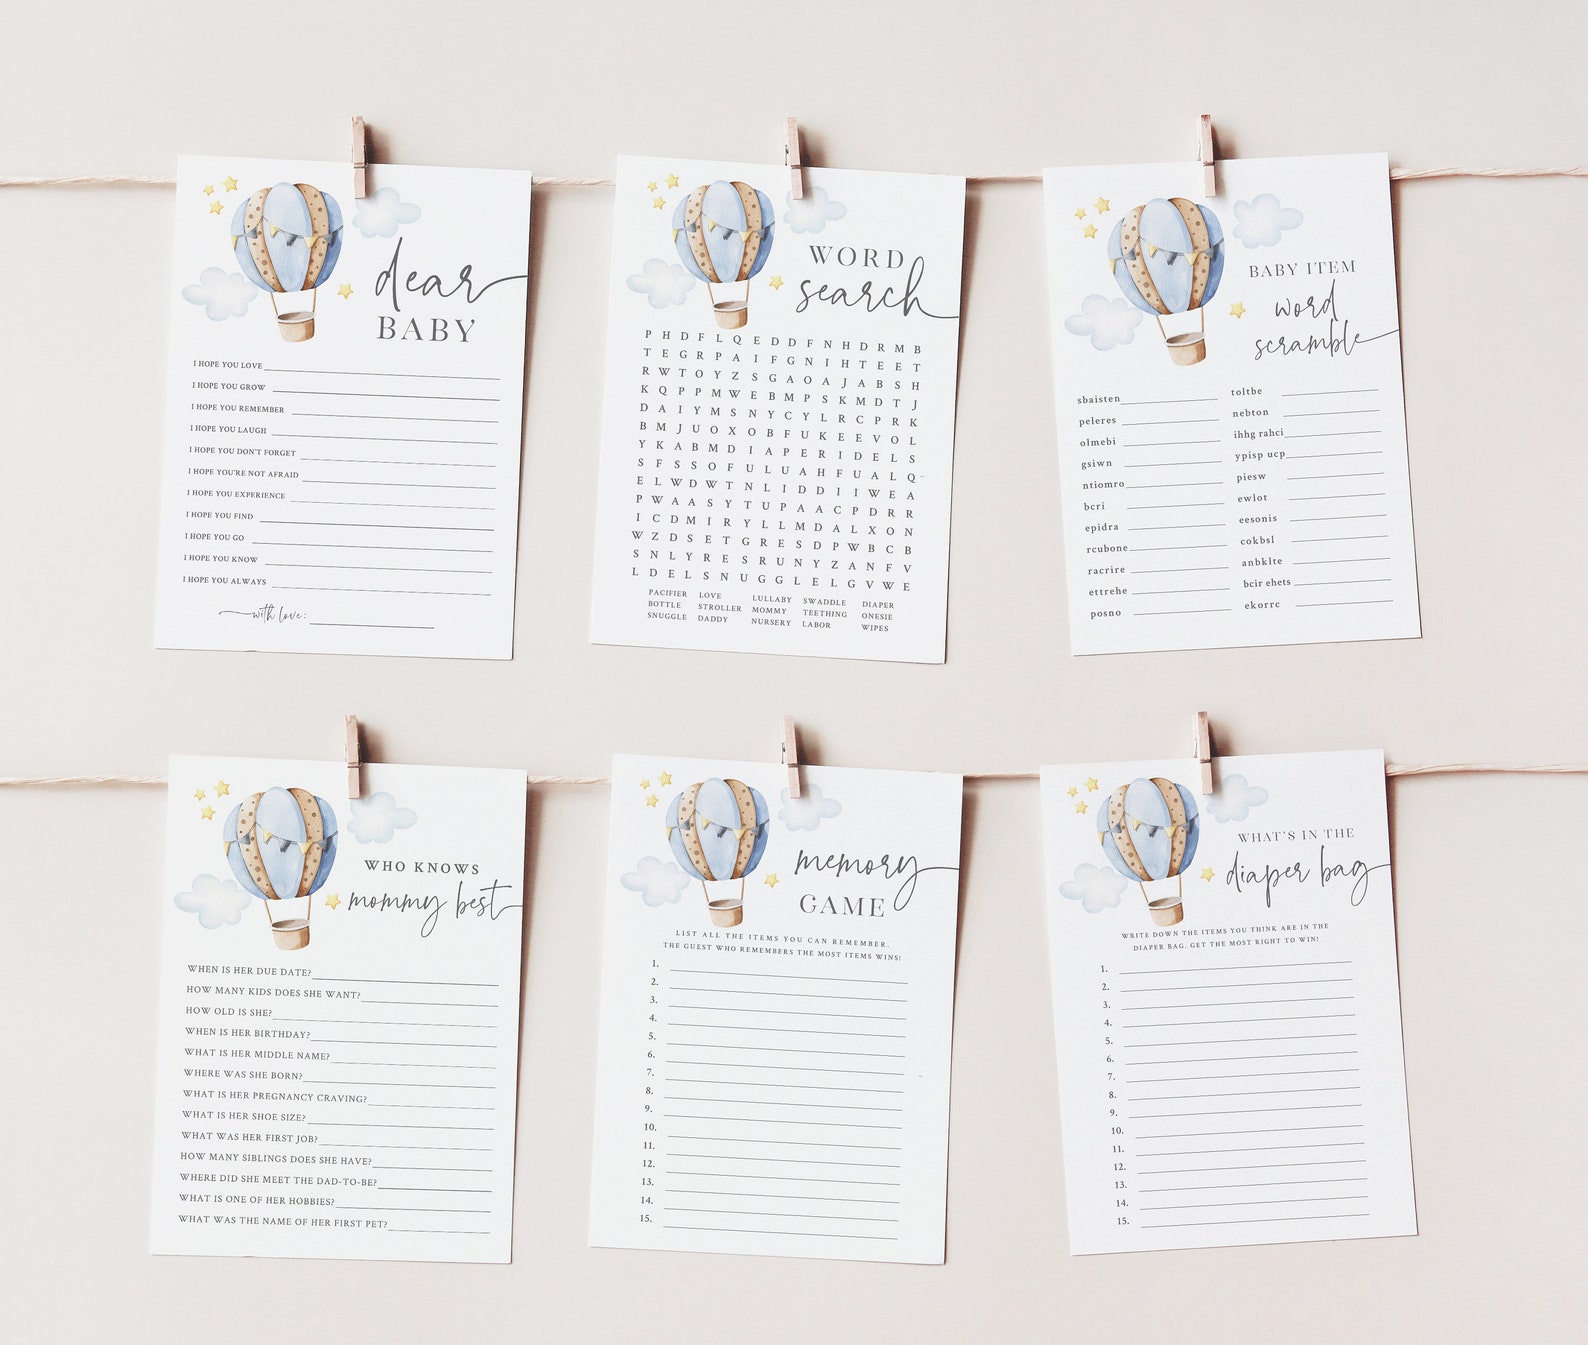 dear
BABY
I HOPE YOU LOVE
I HOPE YOU GROW
I HOPE YOU REMEMBER
I HOPE YOU LAUGH
I HOPE YOU DON'T FORGET
I HOPE YOU'RE NOT AFRAID
I HOPE YOU EXPERIENCE
I HOPE YOU FIND
I HOPE YOU GO
I HOPE YOU KNOW
I HOPE YOU ALWAYS
with love:
WORD
search
P H D F L Q E D D F N H D R M B
T E G R P A I F G N I H T E E T
R W T O Y Z S G A O A J A B S H
K Q P P M W E B M P S K M D T J
D A I Y M S N Y C Y L R C P R K
B M J U O X O B F U K E E V O L
Y K A B M D I A P E R I D E L S
S F S S O F U L U A H F U A L Q
E L W D W T N L I D D I I W E A
P W A A S Y T U P A A C P D R R
I C D M I R Y L L M D A L X O N
W Z D S E T G R E S D P W B C B
S N L Y R E S R U N Y Z A N F V
L D E L S N U G G L E L G V W E
PACIFIER LOVE LULLABY SWADDLE DIAPER
BOTTLE STROLLER MOMMY TEETHING ONESIE
SNUGGLE DADDY NURSERY LABOR WIPES
BABY ITEM
word
scramble
sbaisten toltbe
peleres nebton
olmebi ihhg rahci
gsiwn ypisp ucp
ntiomro piesw
bcri ewlot
epidra eesonis
rcubone cokbsl
racrire anbklte
ettrehe bcir ehets
posno ekorrc
WHO KNOWS
mommy best
WHEN IS HER DUE DATE?
HOW MANY KIDS DOES SHE WANT?
HOW OLD IS SHE?
WHEN IS HER BIRTHDAY?
WHAT IS HER MIDDLE NAME?
WHERE WAS SHE BORN?
WHAT IS HER PREGNANCY CRAVING?
WHAT IS HER SHOE SIZE?
WHAT WAS HER FIRST JOB?
HOW MANY SIBLINGS DOES SHE HAVE?
WHERE DID SHE MEET THE DAD-TO-BE?
WHAT IS ONE OF HER HOBBIES?
WHAT WAS THE NAME OF HER FIRST PET?
memory
GAME
LIST ALL THE ITEMS YOU CAN REMEMBER.
THE GUEST WHO REMEMBERS THE MOST ITEMS WINS!
1.
2.
3.
4.
5.
6.
7.
8.
9.
10.
11.
12.
13.
14.
15.
WHAT'S IN THE
diaper bag
WRITE DOWN THE ITEMS YOU THINK ARE IN THE
DIAPER BAG. GET THE MOST RIGHT TO WIN!
1.
2.
3.
4.
5.
6.
7.
8.
9.
10.
11.
12.
13.
14.
15.